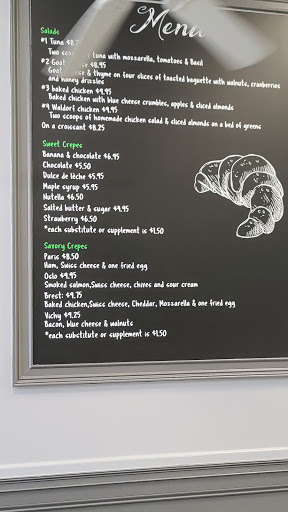 Menu
Salads
#1 Tuna
Two tuna with mozzarella, tomatoes & Basil
#2 Goat $8.95
Goat & thyme on four slices of toasted baguette with walnuts, cranberries
and honey drizzles
#3 baked chicken $9.95
Baked chicken with blue cheese crumbles, apples & sliced almonds
#4 Waldorf chicken $9.95
Two scoops of homemade chicken salad & sliced almonds on a bed of greens
On a croissant $8.25
Sweet Crepes
Banana & chocolate $6.95
Chocolate $5.50
Dulce de lèche $5.95
Maple syrup $5.95
Nutella $6.50
Salted butter & sugar $4.95
Strawberry $6.50
*each substitute or supplement is $1.50
Savory Crepes
Paris $8.50
Ham, Swiss cheese & one fried egg
Oslo $9.95
Smoked salmon,Swiss cheese, chives and sour cream
Brest: $9.75
Baked chicken,Swiss cheese, Cheddar, Mozzarella & one fried egg
Vichy $9.25
Bacon, blue cheese & walnuts
*each substitute or supplement is $1.50